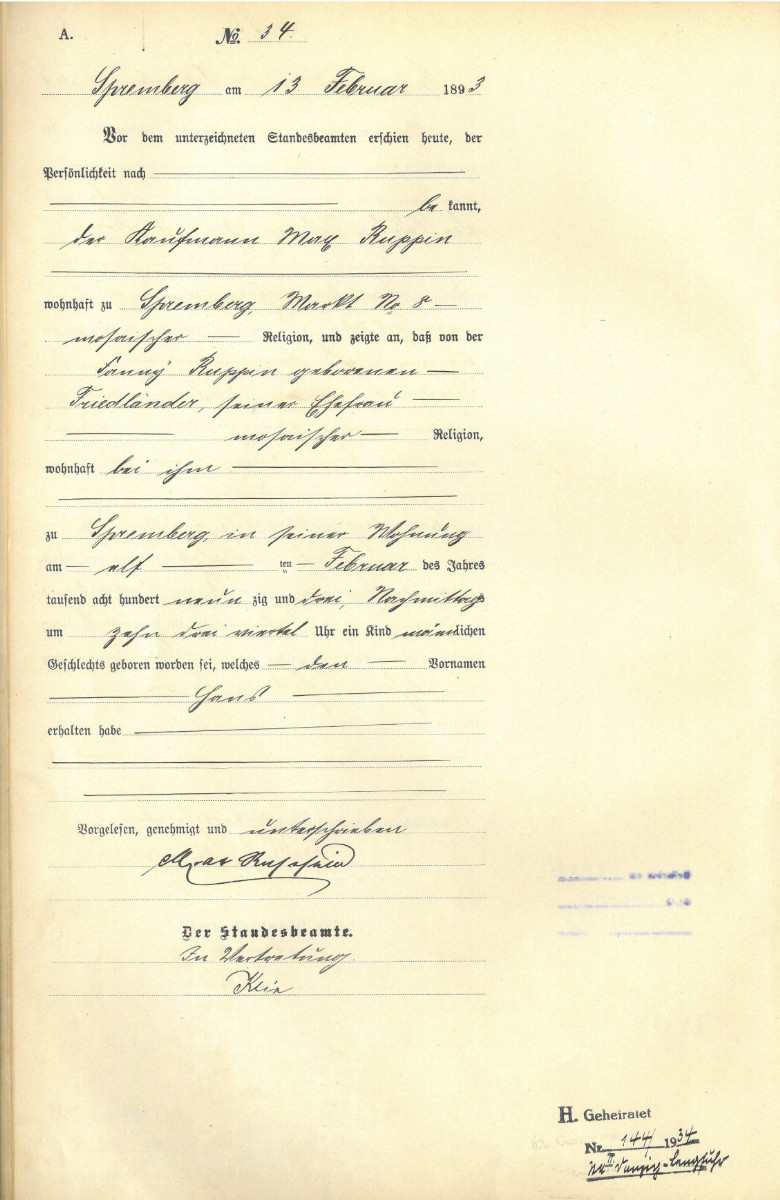 A.
No. 34
Spremberg am 13 Februar 1893
Vor dem unterzeichneten Standesbeamten erschien heute, der
Persönlichkeit nach
be kannt,
der Kaufmann Max Ruppin
wohnhaft zu Spremberg, Markt No 8
mosaischer Religion, und zeigte an, daß von der
Fanny Ruppin geborenen
Friedländer, seiner Ehefrau
mosaischer Religion,
wohnhaft bei ihm
zu Spremberg, in seiner Wohnung
am elf ten Februar des Jahres
tausend acht hundert neun zig und drei, Nachmittags
um zehn drei viertel Uhr ein Kind männlichen
Geschlechts geboren worden sei, welches den Vornamen
Hans
erhalten habe
Vorgelesen, genehmigt und unterschrieben
Max Ruppin
Der Standesbeamte.
In Vertretung
H. Geheiratet
Nr. 144/1934
Danzig-Langfuhr